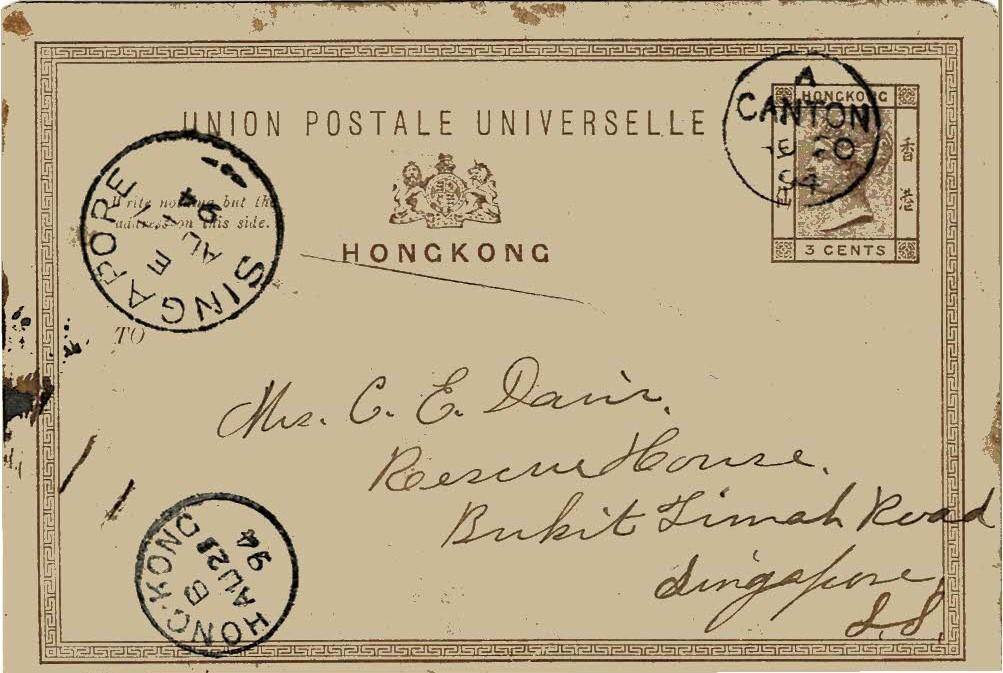 UNION POSTALE UNIVERSELLE
HONGKONG
HONGKONG
香港
3 CENTS
A
CANTON
20
94
Write nothing but the
address on this side.
SINGAPORE
E
AU
94
TO
Mrs. C. E. Davis.
Rescue House.
Bukit Timah Road
Singapore,
S.S.
HONG-KONG
B
AU 2
94